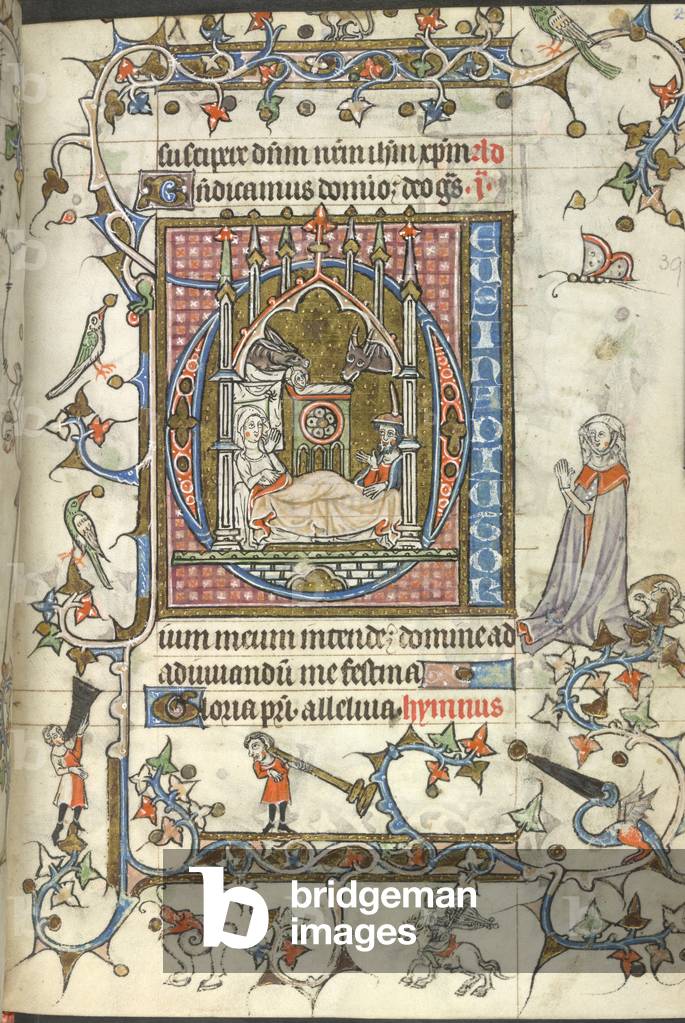 suscipere dnm nrm ihm xpm
ndicamus domino; deo gs.
DEUS IN ADIUTOR
ium meum intende; domine ad
adiuuandu me festina
Gloria pri. alleluia. hymnus
39
b bridgeman
images